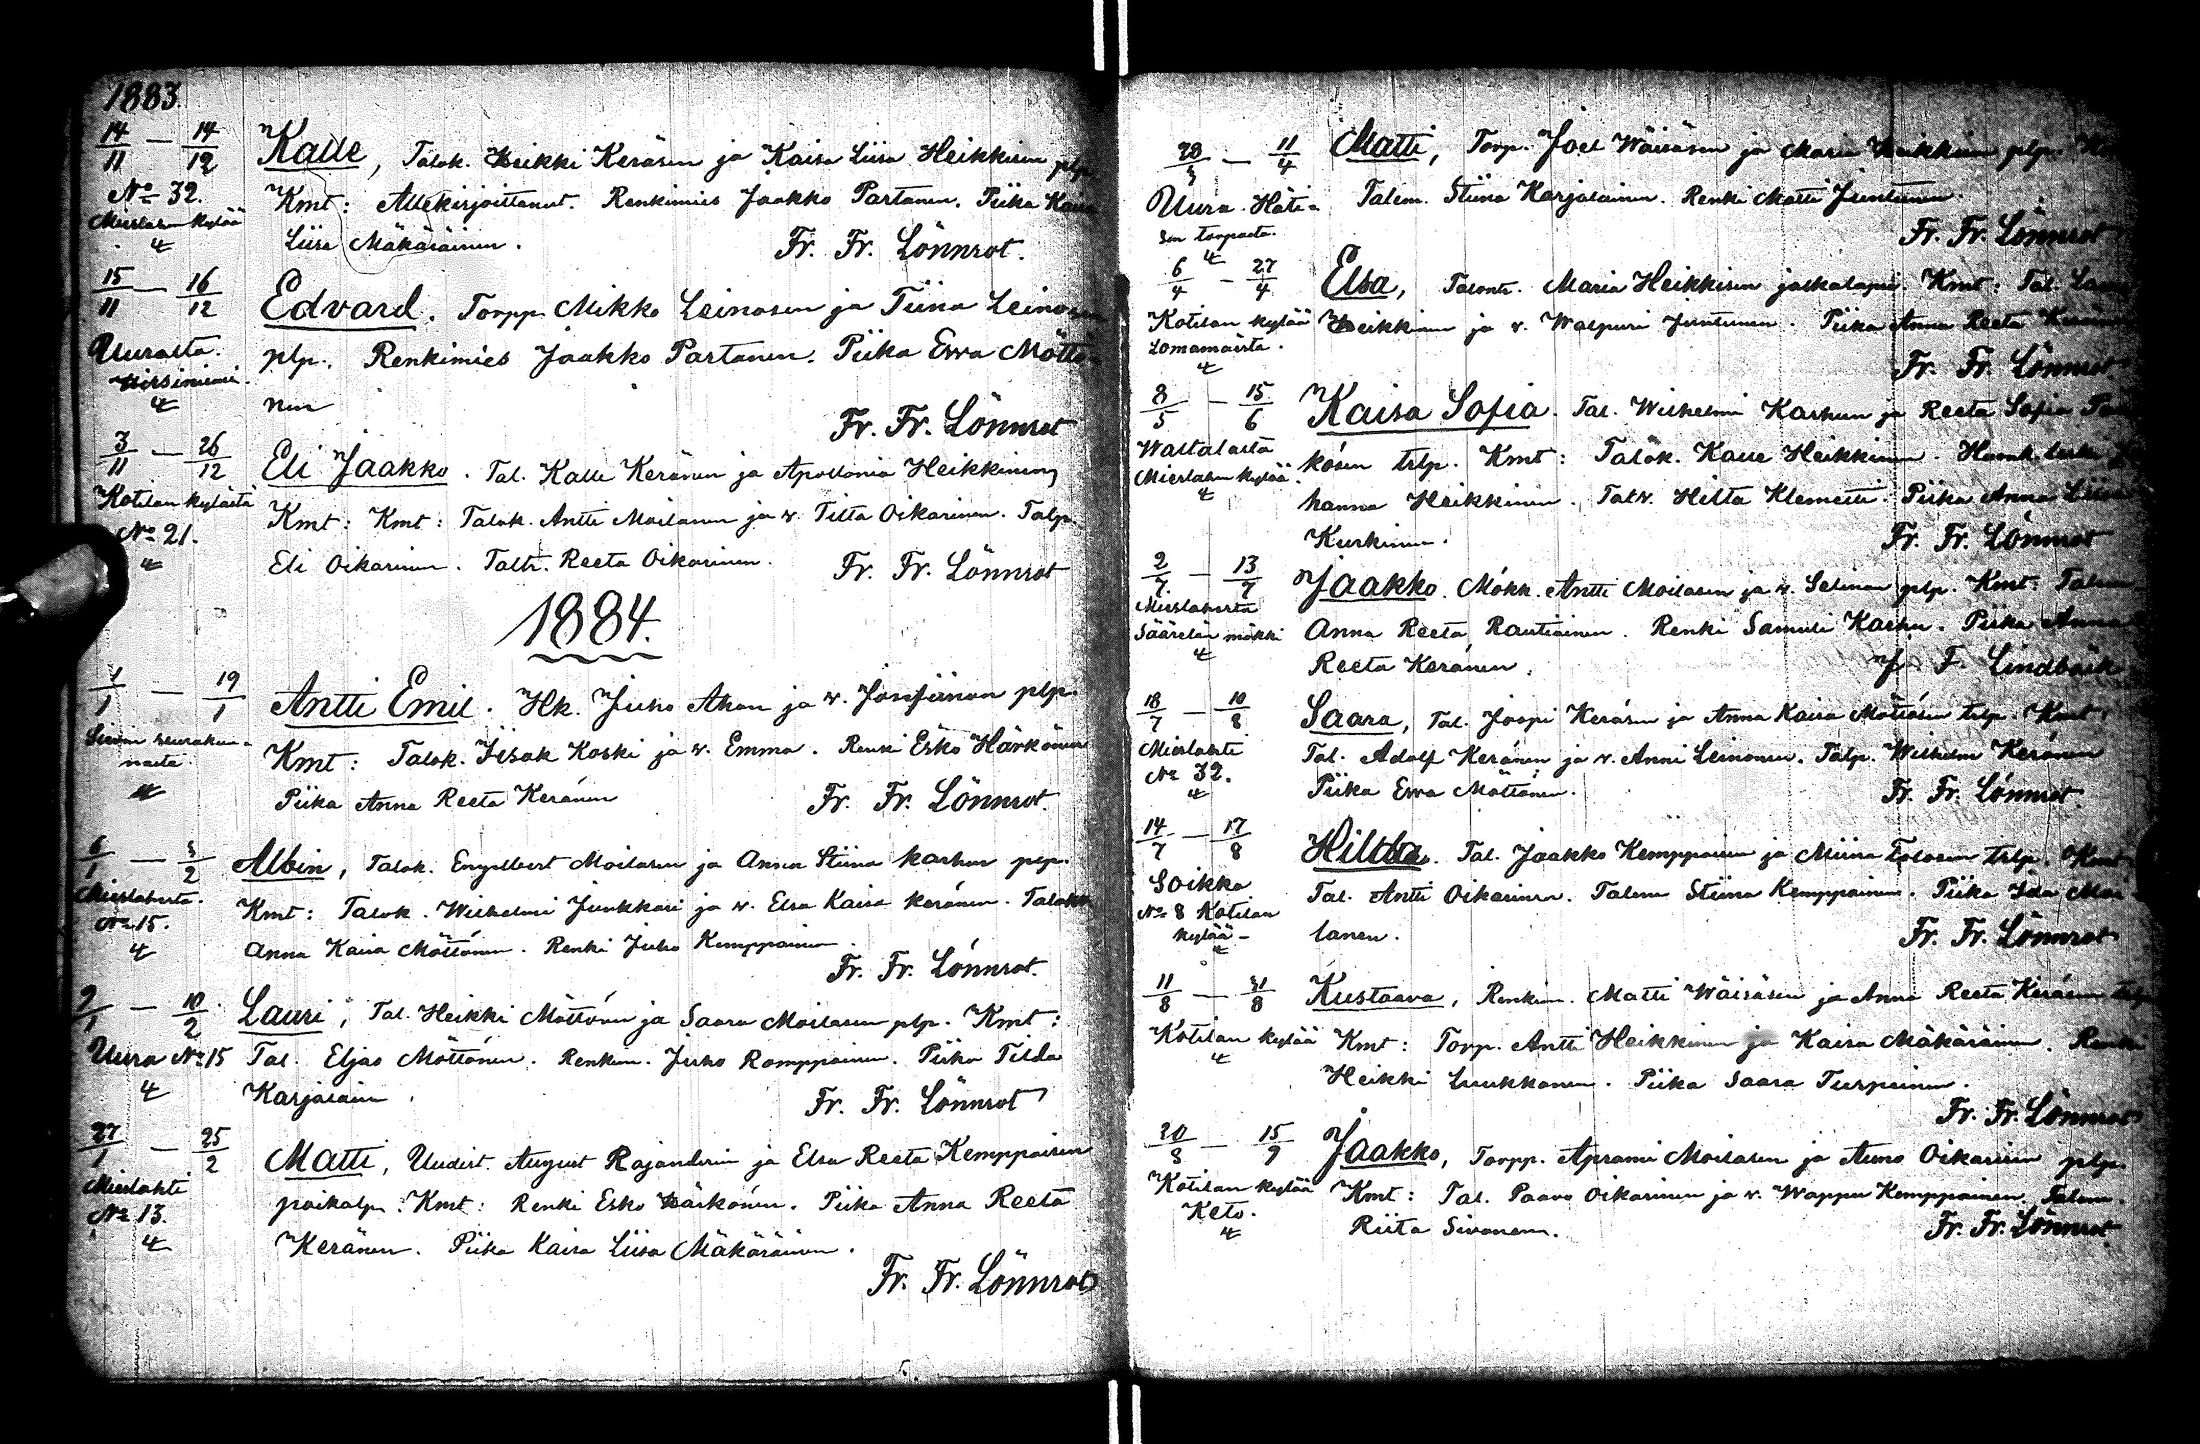 1883.
14/11 — 14/12 Kalle, Talok. Heikki Keräsen ja Kaisa Liisa Heikkisen plp.
No 32. Kmt: Allekirjoittanut. Renkimies Jaakko Partanen. Piika Kaisa
Mieslahen kylää
4 Liisa Mäkäräinen. Fr. Fr. Lönnrot.
15/11 — 16/12 Edvard. Torpp. Mikko Leinosen ja Tiina Leinosen
Uuralta. plp. Renkimies Jaakko Partanen. Piika Ewa Möttö-
Hirsiniemi.
4 nen
Fr. Fr. Lönnrot
3/11 — 26/12 Eli Jaakko. Tal. Kalle Keränen ja Apollonia Heikkinen,
Kotilan kylästä Kmt: Kmt: Talok. Antti Moilanen ja v. Tilta Oikarinen. Talp.
No 21.
4 Eli Oikarinen. Taltr. Reeta Oikarinen. Fr. Fr. Lönnrot
1884.
1/1 — 19/1 Antti Emil. Hk. Juho Ahon ja v. Josefiinan plp.
seurakun-
nasta. Kmt: Talok. Iisak Koski ja v. Emma. Renki Esko Härkönen
4 Piika Anna Reeta Keränen Fr. Fr. Lönnrot.
6/1 — 3/2 Albin, Talok. Engelbert Moilasen ja Anna Stiina Karhun plp.
Mieslahesta.
No 15. Kmt: Talok. Wilhelmi Junkkari ja v. Elsa Kaisa Keränen. Talokk.
4 Anna Kaisa Möttönen. Renki Juho Kemppainen.
Fr. Fr. Lönnrot.
9/1 — 10/2 Lauri, Tal. Heikki Möttösen ja Saara Moilasen plp. Kmt:
Uura No 15 Tal. Eljas Möttönen. Renkim. Juho Romppainen. Piika Tilda
4 Karjalainen. Fr. Fr. Lönnrot
27/1 — 25/2 Matti, Uudist. August Rajanderin ja Elsa Reeta Kemppaisen
Mieslahti
No 13. poikalp. Kmt: Renki Esko Härkönen. Piika Anna Reeta
4 Keränen. Piika Kaisa Liisa Mäkäräinen.
Fr. Fr. Lönnrot
28/3 — 11/4 Matti, Torp. Joel Wäisäsen ja Maria Heikkisen plp.
Uura. Häti-
sen torpasta. Talem. Stiina Karjalainen. Renki Matti Juntunen.
4 Fr. Fr. Lönnrot
6/4 — 27/4 Elsa, Talontr. Maria Heikkisen jalkalapsi. Kmt: Tal.
Kotilan kylää Heikkinen ja v. Walpuri Juntunen. Piika Anna Reeta
Lomamäestä.
4 Fr. Fr. Lönnrot
8/5 — 15/6 Kaisa Sofia. Tal. Wilhelmi Karhun ja Reeta Sofia
Wastalasta kösen trlp. Kmt: Talok. Kalle Heikkinen.
Mieslahen kylää.
4 hanna Heikkinen. Talv. Hilta Klemetti. Piika Anna Liisa
Kurkinen. Fr. Fr. Lönnrot
2/7 — 13/7 Jaakko. Mökk. Antti Moilasen ja v. Selman plp. Kmt: Talem
Mieslahesta
Säärelän mökki Anna Reeta Rautiainen. Renki Samuli Karhu. Piika Anna
4 Reeta Keränen. J. F. Lindbäck
18/7 — 10/8 Saara, Tal. Joopi Keräsen ja Anna Kaisa Möttösen trlp. Kmt:
Mieslahti
No 32. Tal. Adolf Keränen ja v. Anni Leinonen. Talp. Wilhelm Keränen
4 Piika Ewa Möttönen. Fr. Fr. Lönnrot.
14/7 — 17/8 Hilda. Tal. Jaakko Kemppaisen ja Miina Tolosen trlp. Kmt:
Soikko
No 8 Kotilan Tal. Antti Oikarinen. Talem Stiina Kemppainen. Piika Ida Moi-
kylää-
4 lanen. Fr. Fr. Lönnrot
11/8 — 31/8 Kustaava, Renkim. Matti Wäisäsen ja Anna Reeta Keräsen trlp
Kotilan kylää Kmt: Torp. Antti Heikkinen ja Kaisa Mäkäräinen. Renki
4 Heikki Luukkonen. Piika Saara Turpeinen.
Fr. Fr. Lönnrot
20/8 — 15/9 Jaakko, Torpp. Aprami Moilasen ja Auno Oikarisen plp.
Kotilan kylää Kmt: Tal. Paavo Oikarinen ja v. Wappu Kemppainen. Talem.
Keto.
4 Riita Sivonen. Fr. Fr. Lönnrot